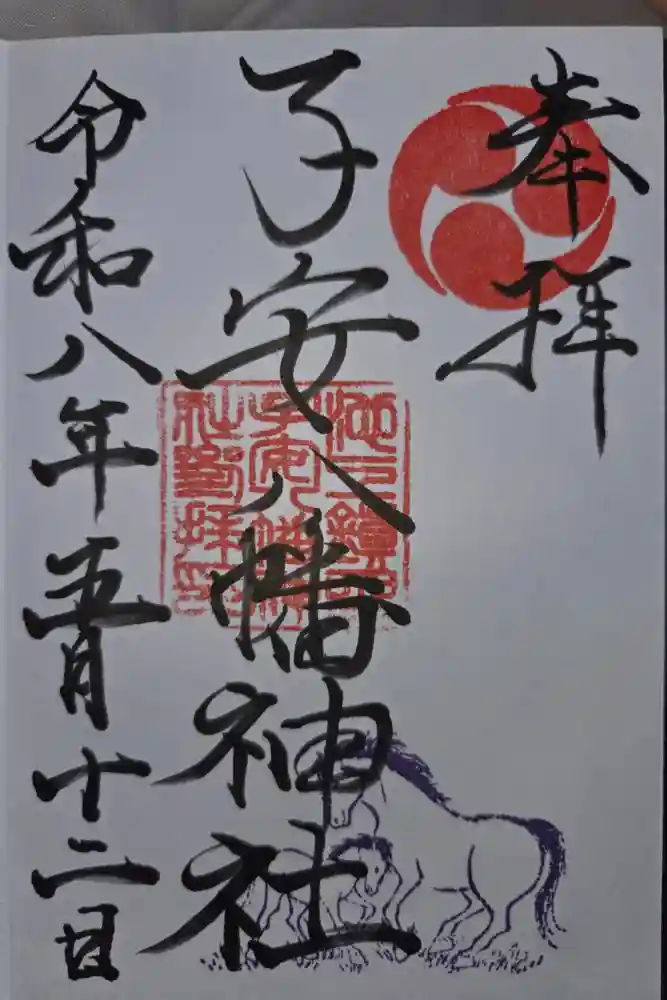 奉拝
子安八幡神社
令和八年五月十二日